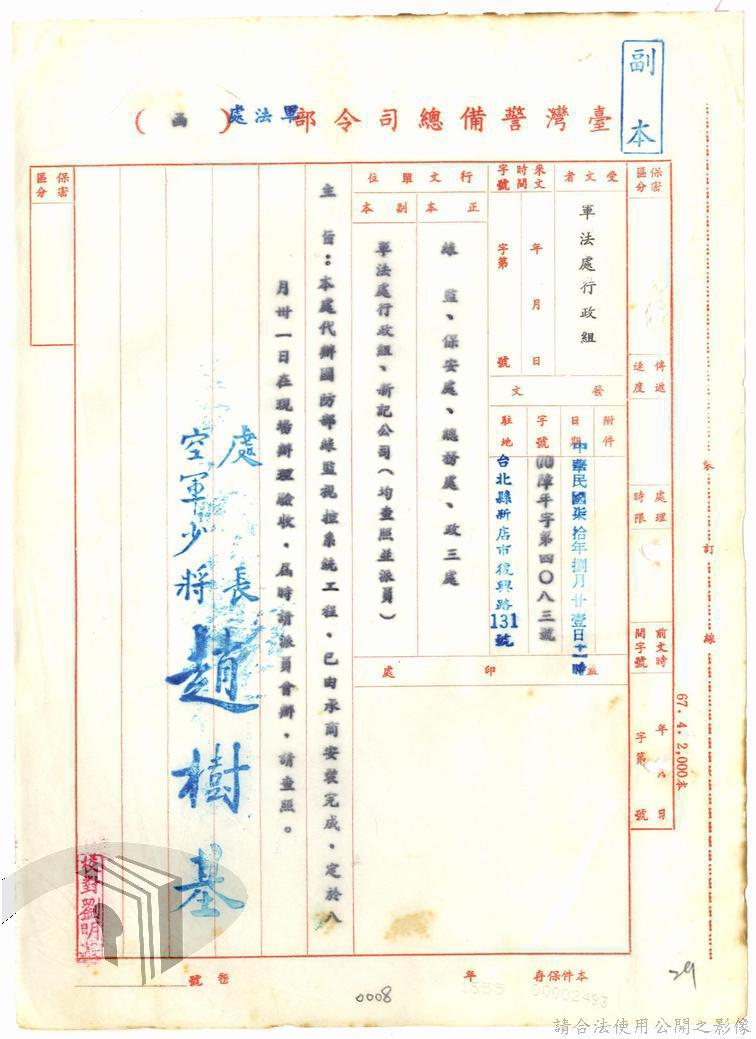 副本
臺灣警備總司令部軍法處(函)
保密區分
傳遞速度
處理時限
前文時間字號
年 月 日
字第 號
受文者
軍法處行政組
來文時間字號
年 月 日
字第 號
行文單位
正本
綠監、保安處、總務處、政三處
副本
軍法處行政組、新記公司(均查照並派員)
發文
附件
日期
中華民國柒拾年捌月廿壹日十一時
字號
(70)障年字第四〇八三號
駐地
台北縣新店市復興路131號
蓋印處
主旨:本處代辦國防部綠監視控系統工程,已由承商安裝完成,定於八
月卅一日在現場辦理驗收,屆時請派員會辦,請查照。
處長
空軍少將趙樹基
保密區分
校對劉明
裝訂線
67.4.2,000本
本件保存 年
卷號
1555 00002493
0008
29
請合法使用公開之影像